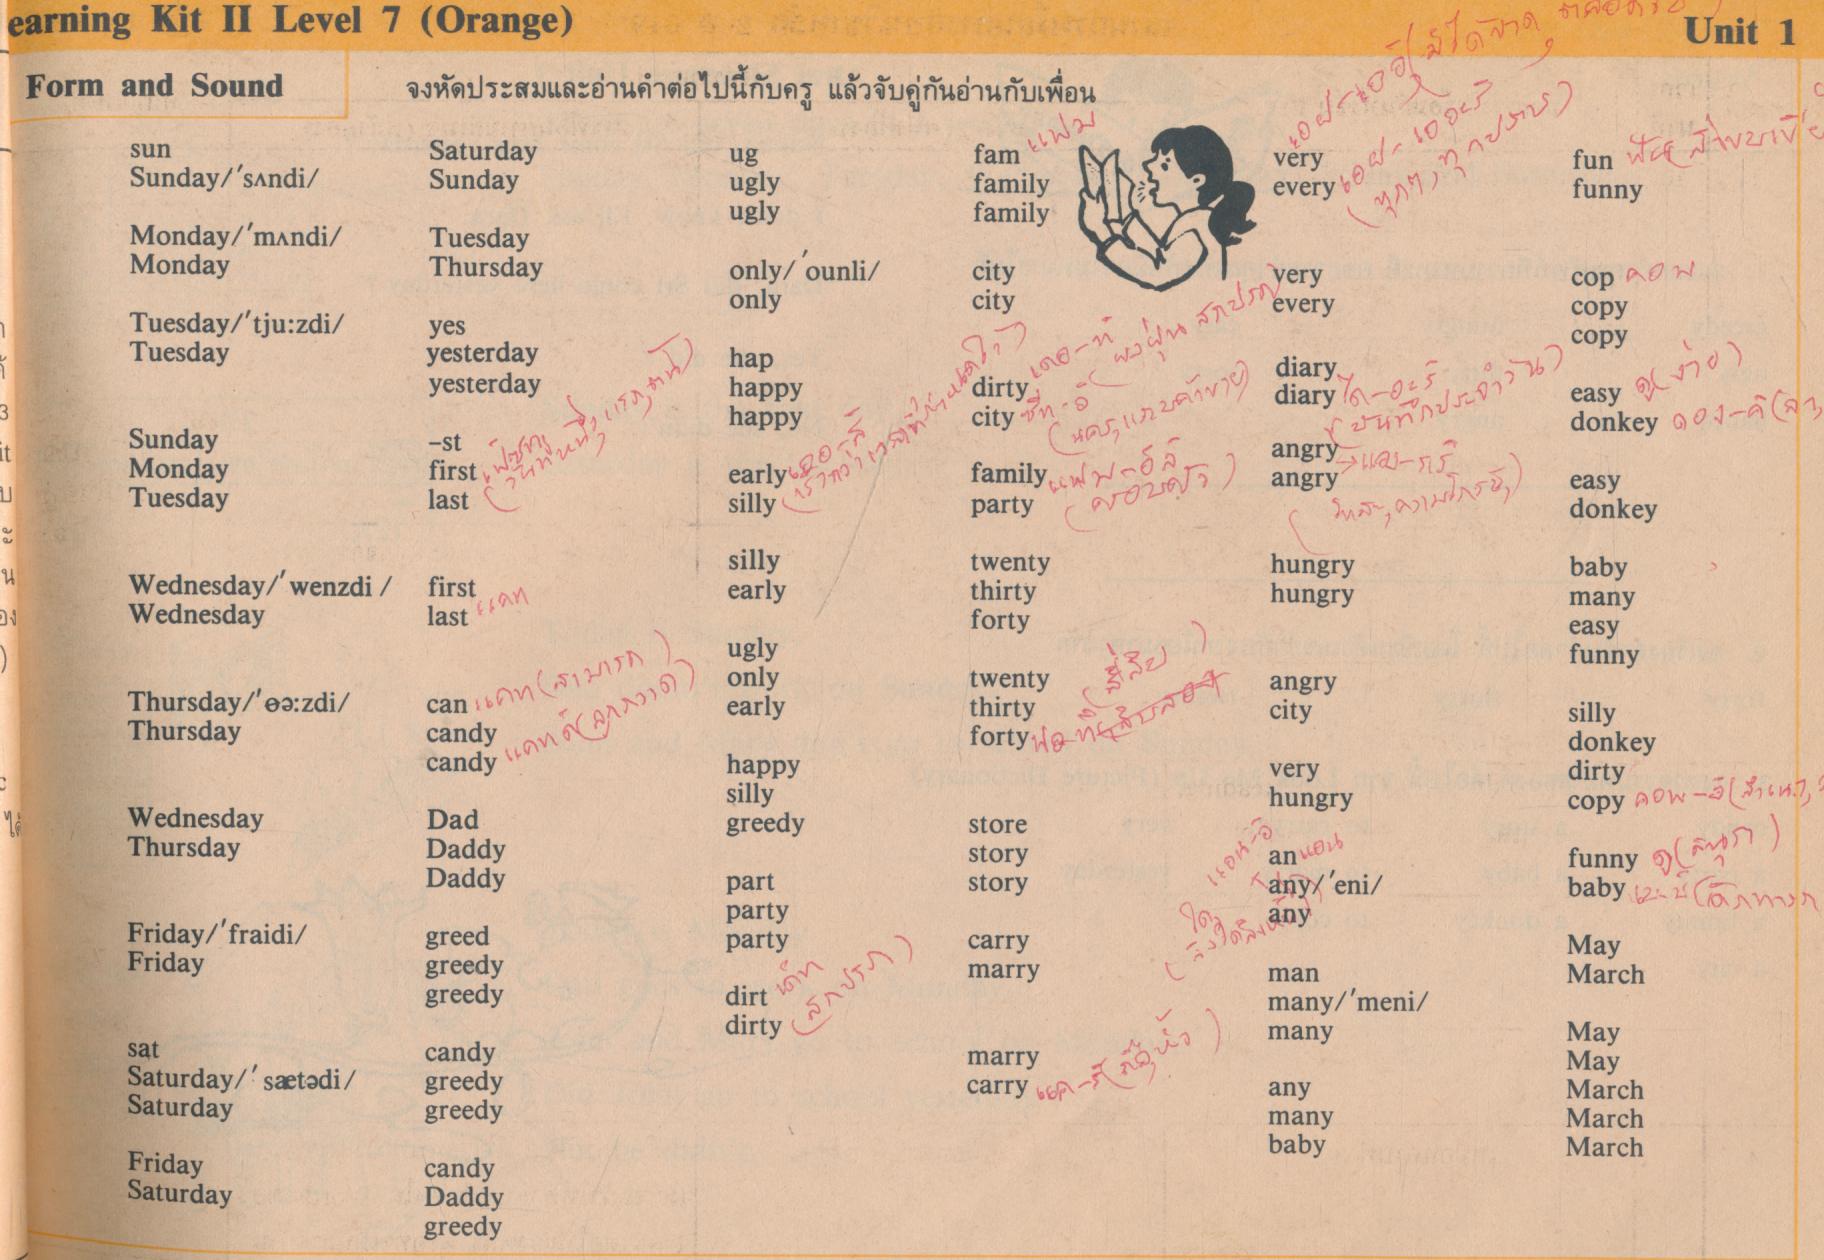 earning Kit II Level 7 (Orange)
Unit 1
Form and Sound
จงหัดประสมและอ่านคำต่อไปนี้กับครู แล้วจับคู่กันอ่านกับเพื่อน
sun
Sunday/'sʌndi/
Monday/'mʌndi/
Monday
Tuesday/'tju:zdi/
Tuesday
Sunday
Monday
Tuesday
Wednesday/'wenzdi /
Wednesday
Thursday/'ɵə:zdi/
Thursday
Wednesday
Thursday
Friday/'fraidi/
Friday
sat
Saturday/'sætədi/
Saturday
Friday
Saturday
Saturday
Sunday
Tuesday
Thursday
yes
yesterday
yesterday
–st
first
last
first
last แคท
can แคท (สามารถ)
candy
candy แคทดี้ (ลูกกวาด)
Dad
Daddy
Daddy
greed
greedy
greedy
candy
greedy
greedy
candy
Daddy
greedy
ug
ugly
ugly
only/'ounli/
only
hap
happy
happy
early
silly
silly
early
ugly
only
early
happy
silly
greedy
part
party
party
dirt
dirty (สกปรก)
fam แฟม
family
family
city
city
dirty
city
family แฟม-อิลิ
party (ครอบครัว)
twenty
thirty
forty
twenty
thirty (สี่สิบ)
forty
store
story
story
carry
marry
marry
carry แค-รี่ (ถือ, หิ้ว)
very
every
very
every
diary
diary ได-อะรี่
(บันทึกประจำวัน)
angry
angry
hungry
hungry
angry
city
very
hungry
an แอน
any/'eni/
any
man
many/'meni/
many
any
many
baby
fun
funny
cop คอพ
copy
copy
easy (ง่าย)
donkey
easy
donkey
baby
many
easy
funny
silly
donkey
dirty
copy คอพ-อี่
funny
baby
May
March
May
May
March
March
March